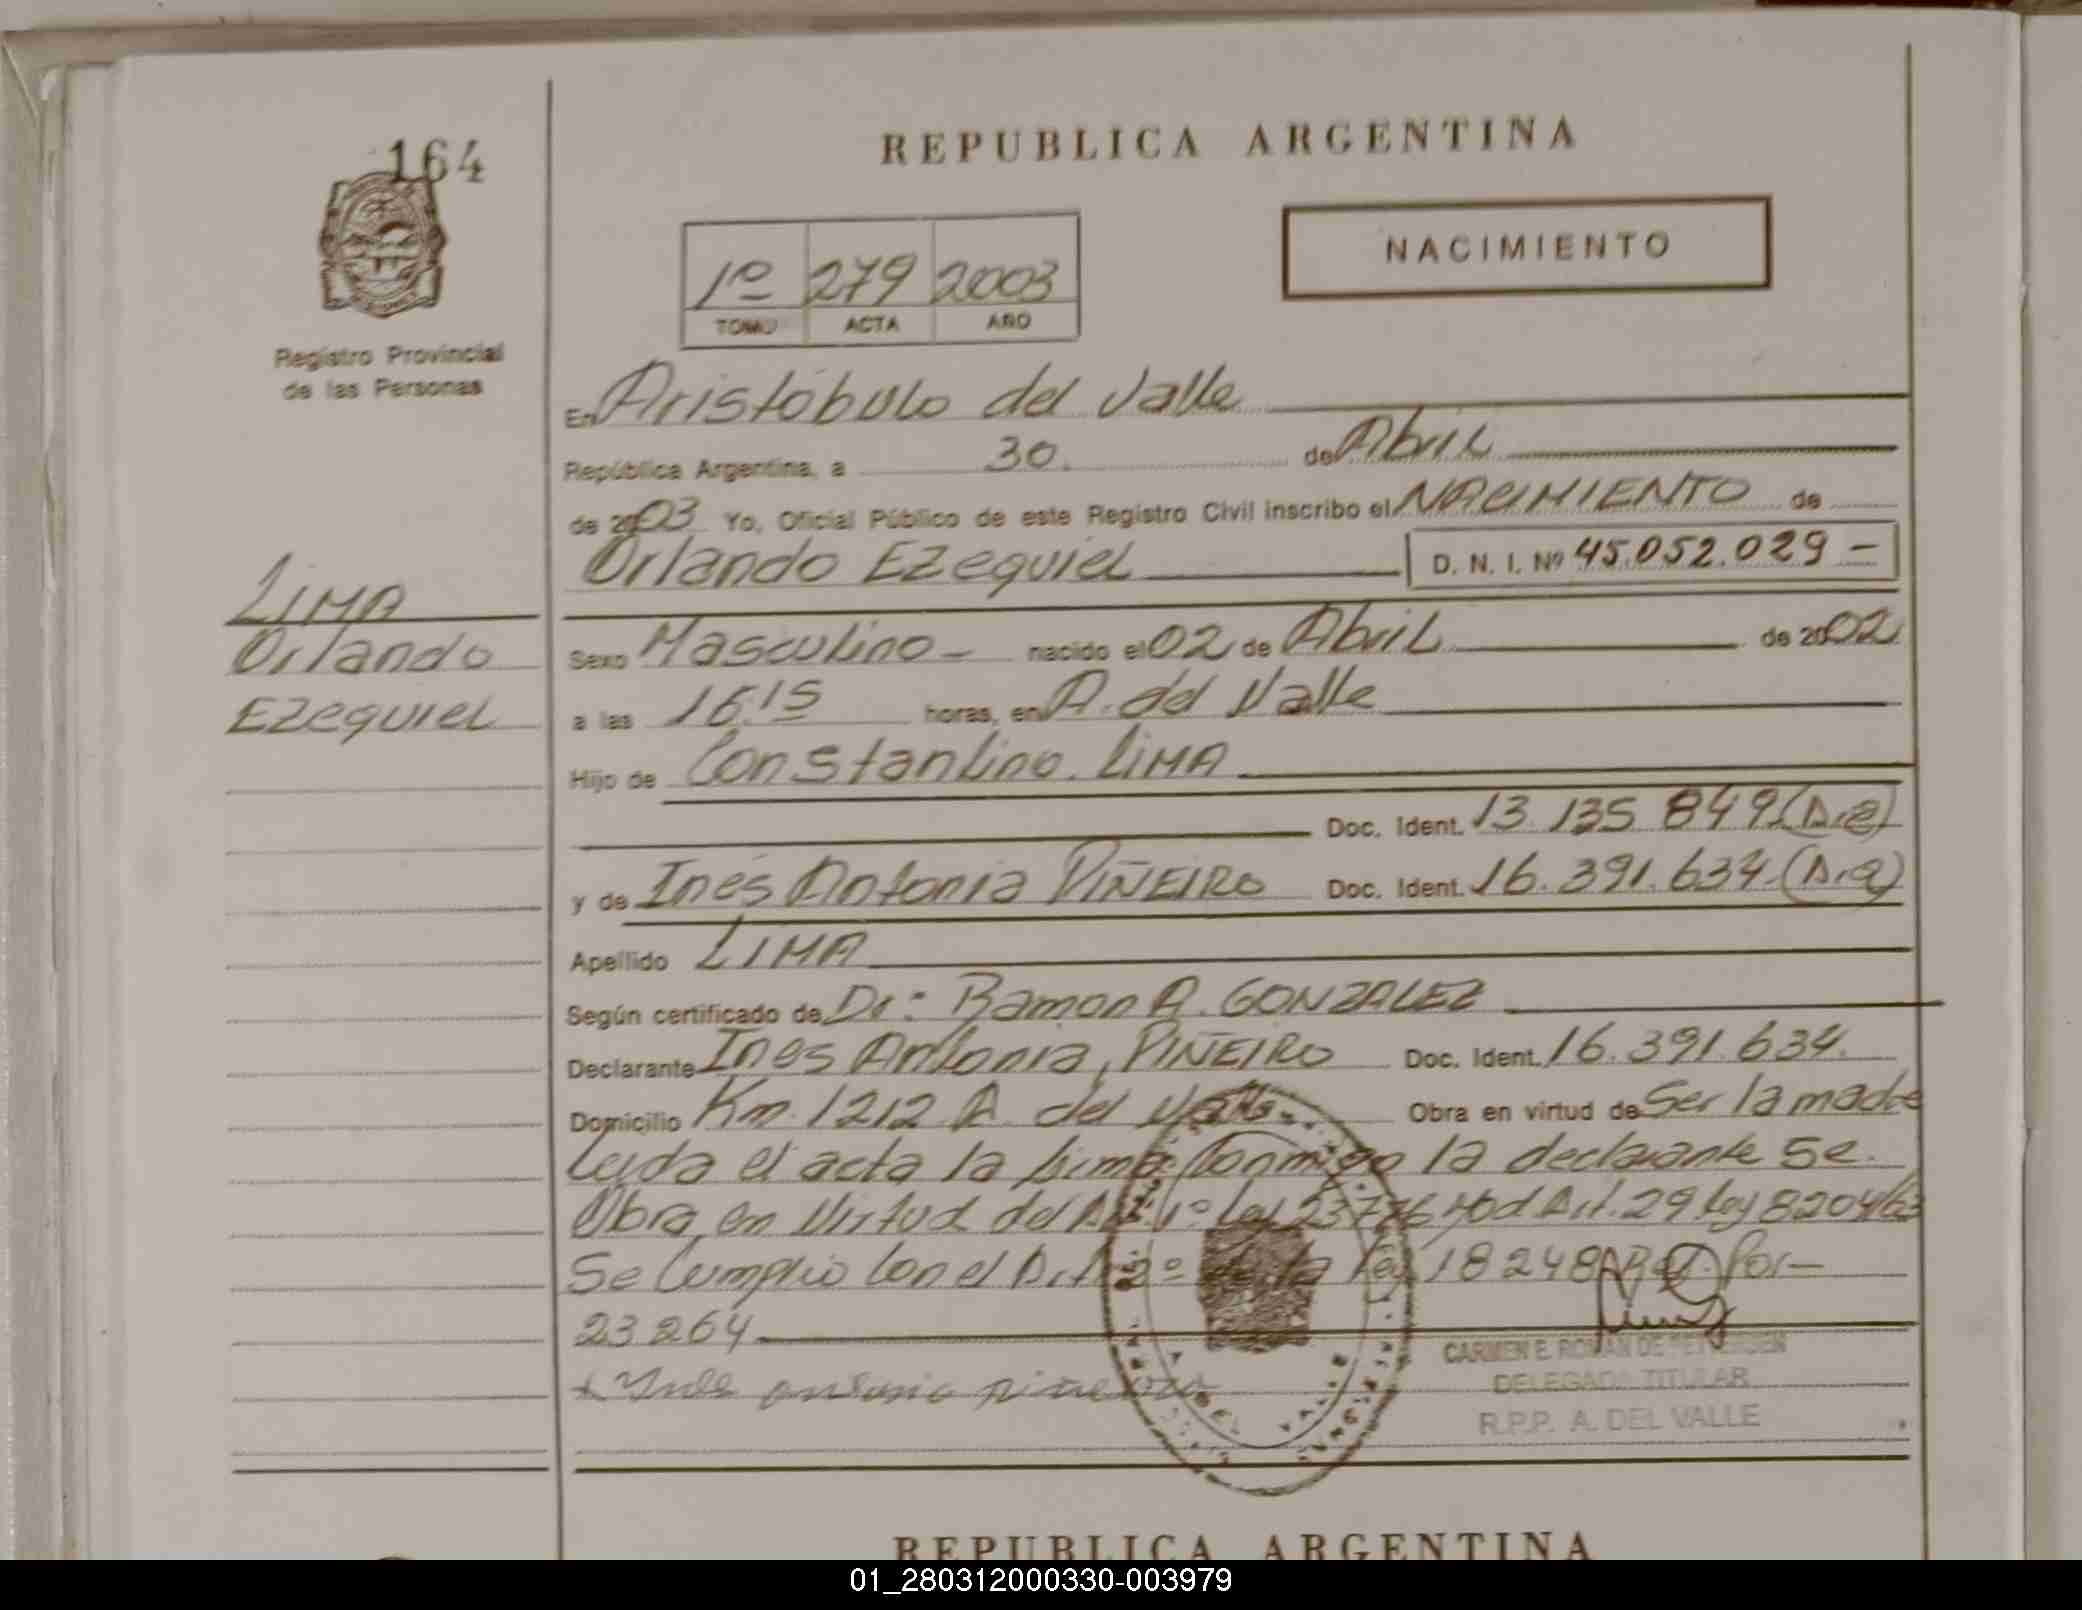 164
REPUBLICA ARGENTINA
NACIMIENTO
1º 279 2003
TOMO ACTA AÑO
Registro Provincial
de las Personas
En Aristóbulo del Valle
República Argentina, a 30. de Abril
de 2003 Yo, Oficial Público de este Registro Civil inscribo el NACIMIENTO de
Orlando Ezequiel D. N. I. Nº 45.052.029 -
LIMA
Orlando
Ezequiel
Sexo Masculino - nacido el 02 de Abril de 2002
a las 16.15 horas, en A. del Valle
Hijo de Constantino. LIMA
Doc. Ident. 13.135.849
y de Inés Antonia PIÑEIRO Doc. Ident. 16.391.634
Apellido LIMA
Según certificado de Dr: Ramon A. GONZALEZ
Declarante Ines Antonia, PIÑEIRO Doc. Ident. 16.391.634.
Domicilio Km. 1212 A. del Valle Obra en virtud de Ser la madre
Leida el acta la firma Conmigo la declarante Se
Obra en Virtud del Art. 1º Ley 23776 Mod Art. 29 Ley 8204/63
Se Cumplio Con el Art. 2º de la Ley 18248 Por-
23264
x Ines antonia piñeiro
CARMEN E. ROMAN DE
DELEGADA TITULAR
R.P.P. A. DEL VALLE
REPUBLICA ARGENTINA
01_280312000330-003979